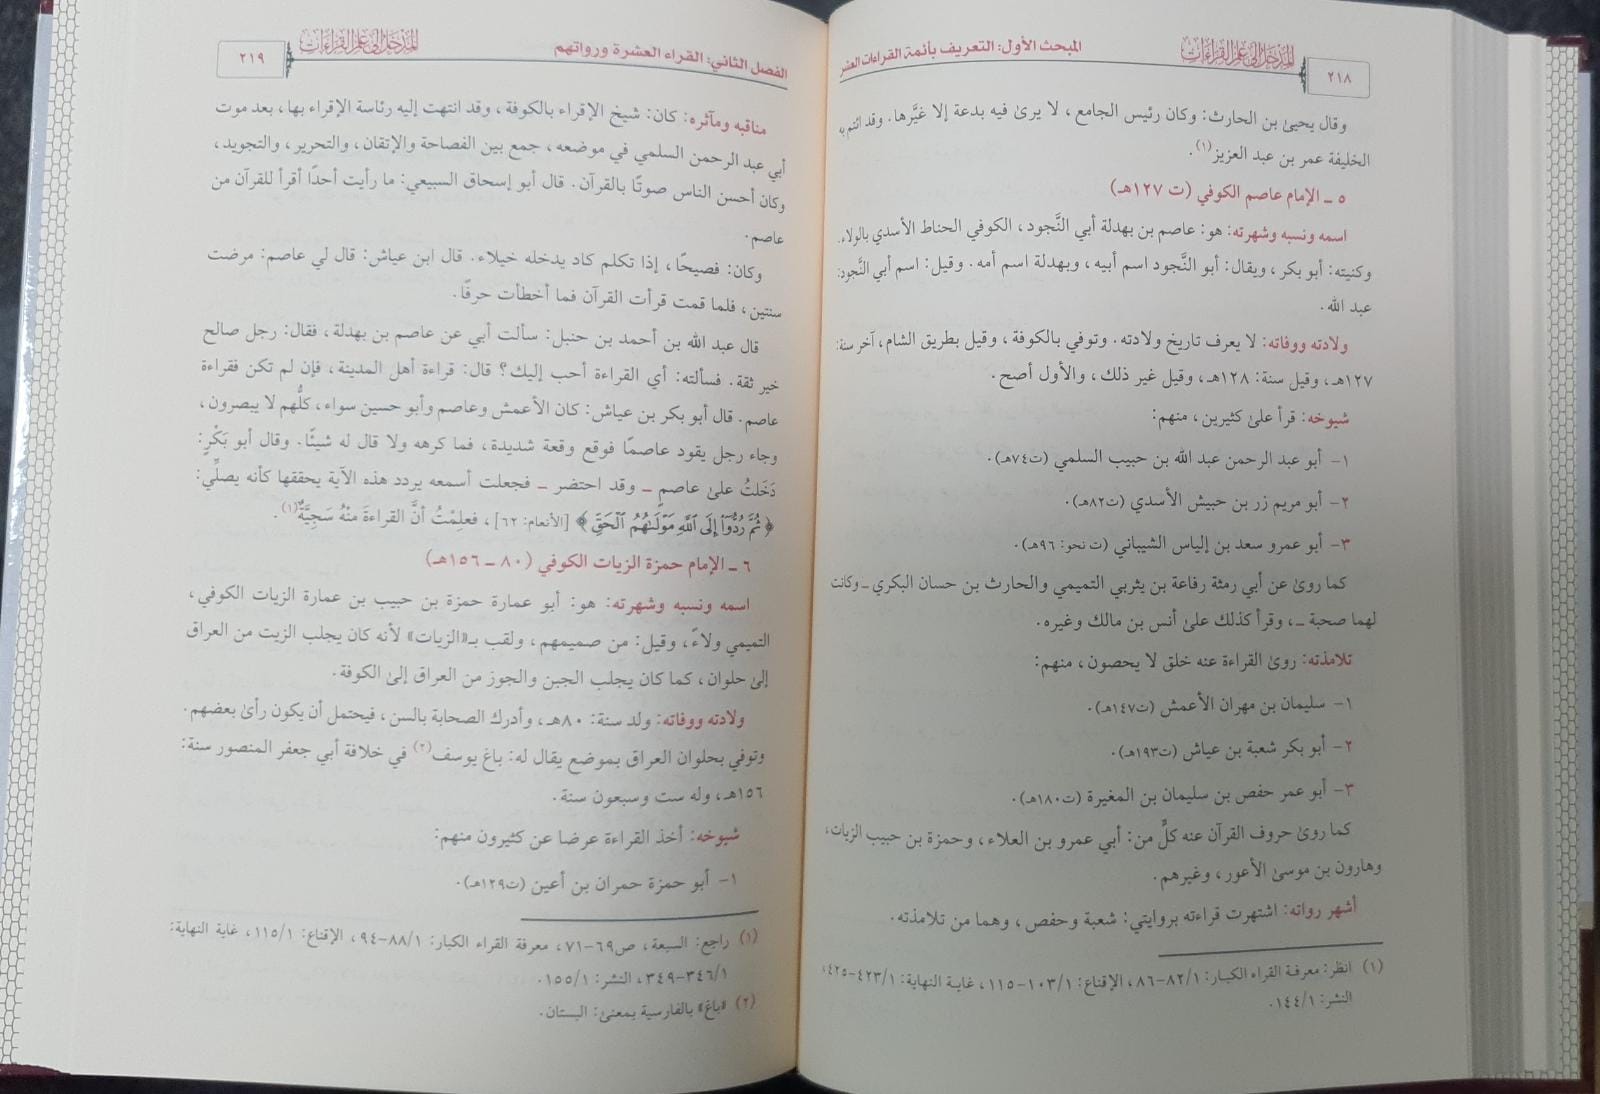 ٢١٨
المدخل إلى علم القراءات
المبحث الأول: التعريف بأئمة القراءات العشر
وقال يحيىٰ بن الحارث: وكان رئيس الجامع، لا يرىٰ فيه بدعة إلا غيَّرها. وقد ائتم به
الخليفة عمر بن عبد العزيز(١).
٥ ـ الإمام عاصم الكوفي (ت ١٢٧هـ)
اسمه ونسبه وشهرته: هو: عاصم بن بهدلة أبي النَّجود، الكوفي الحناط الأسدي بالولاء.
وكنيته: أبو بكر، ويقال: أبو النَّجود اسم أبيه، وبهدلة اسم أمه. وقيل: اسم أبي النَّجود:
عبد الله.
ولادته ووفاته: لا يعرف تاريخ ولادته. وتوفي بالكوفة، وقيل بطريق الشام، آخر سنة:
١٢٧هـ، وقيل سنة: ١٢٨هـ، وقيل غير ذلك، والأول أصح.
شيوخه: قرأ علىٰ كثيرين، منهم:
١- أبو عبد الرحمن عبد الله بن حبيب السلمي (ت٧٤هـ).
٢- أبو مريم زر بن حبيش الأسدي (ت٨٢هـ).
٣- أبو عمرو سعد بن إلياس الشيباني (ت نحو: ٩٦هـ).
كما روىٰ عن أبي رمثة رفاعة بن يثربي التميمي والحارث بن حسان البكري ـ وكانت
لهما صحبة ـ، وقرأ كذلك علىٰ أنس بن مالك وغيره.
تلامذته: روىٰ القراءة عنه خلق لا يحصون، منهم:
١- سليمان بن مهران الأعمش (ت١٤٧هـ).
٢- أبو بكر شعبة بن عياش (ت١٩٣هـ).
٣- أبو عمر حفص بن سليمان بن المغيرة (ت١٨٠هـ).
كما روىٰ حروف القرآن عنه كلٌّ من: أبي عمرو بن العلاء، وحمزة بن حبيب الزيات،
وهارون بن موسىٰ الأعور، وغيرهم.
أشهر رواته: اشتهرت قراءته بروايتي: شعبة وحفص، وهما من تلامذته.
(١) انظر: معرفة القراء الكبار: ٨٢/١-٨٦، الإقناع: ١٠٣/١-١١٥، غاية النهاية: ٤٢٣/١-٤٢٥،
النشر: ١٤٤/١.
الفصل الثاني: القراء العشرة ورواتهم
المدخل إلى علم القراءات
٢١٩
مناقبه ومآثره: كان: شيخ الإقراء بالكوفة، وقد انتهت إليه رئاسة الإقراء بها، بعد موت
أبي عبد الرحمن السلمي في موضعه، جمع بين الفصاحة والإتقان، والتحرير، والتجويد،
وكان أحسن الناس صوتًا بالقرآن. قال أبو إسحاق السبيعي: ما رأيت أحدًا أقرأ للقرآن من
عاصم.
وكان: فصيحًا، إذا تكلم كاد يدخله خيلاء. قال ابن عياش: قال لي عاصم: مرضت
سنتين، فلما قمت قرأت القرآن فما أخطأت حرفًا.
قال عبد الله بن أحمد بن حنبل: سألت أبي عن عاصم بن بهدلة، فقال: رجل صالح
خير ثقة. فسألته: أي القراءة أحب إليك؟ قال: قراءة أهل المدينة، فإن لم تكن فقراءة
عاصم. قال أبو بكر بن عياش: كان الأعمش وعاصم وأبو حسين سواء، كلُّهم لا يبصرون،
وجاء رجل يقود عاصمًا فوقع وقعة شديدة، فما كرهه ولا قال له شيئًا. وقال أبو بَكْرٍ:
دَخَلتُ علىٰ عاصمٍ ـ وقد احتضر ـ فجعلت أسمعه يردد هذه الآية يحققها كأنه يصلِّي:
﴿ثُمَّ رُدُّوٓاْ إِلَى ٱللَّهِ مَوْلَىٰهُمُ ٱلْحَقِّ﴾ [الأنعام: ٦٢]، فعلِمْتُ أنَّ القراءةَ منْهُ سَجِيَّةٌ(١).
٦ ـ الإمام حمزة الزيات الكوفي (٨٠ ـ ١٥٦هـ)
اسمه ونسبه وشهرته: هو: أبو عمارة حمزة بن حبيب بن عمارة الزيات الكوفي،
التميمي ولاءً، وقيل: من صميمهم، ولقب بـ«الزيات» لأنه كان يجلب الزيت من العراق
إلىٰ حلوان، كما كان يجلب الجبن والجوز من العراق إلىٰ الكوفة.
ولادته ووفاته: ولد سنة: ٨٠هـ، وأدرك الصحابة بالسن، فيحتمل أن يكون رأىٰ بعضهم.
وتوفي بحلوان العراق بموضع يقال له: باغ يوسف(٢) في خلافة أبي جعفر المنصور سنة:
١٥٦هـ، وله ست وسبعون سنة.
شيوخه: أخذ القراءة عرضا عن كثيرون منهم:
١- أبو حمزة حمران بن أعين (ت١٢٩هـ).
(١) راجع: السبعة، ص٦٩-٧١، معرفة القراء الكبار: ٨٨/١-٩٤، الإقناع: ١١٥/١، غاية النهاية:
٣٤٦/١-٣٤٩، النشر: ١٥٥/١.
(٢) «باغ» بالفارسية بمعنىٰ: البستان.